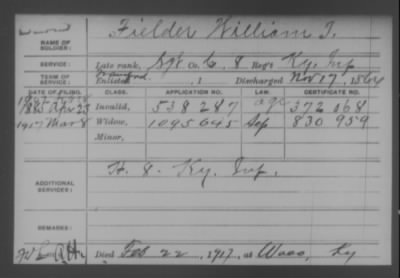 Fielder William T.
NAME OF SOLDIER:
SERVICE: Late rank, Sgt Co. C, 8 Reg't Ky. Inf
TERM OF SERVICE: Enlisted , 1 Discharged Nov 17, 1864
DATE OF FILING. CLASS. APPLICATION NO. LAW. CERTIFICATE NO.
1885 Apr 23 Invalid, 538287 age 372068
1917 Mar 8 Widow, 1095645 Sep 830959
Minor,
ADDITIONAL SERVICES: H. 8. Ky. Inf.
REMARKS:
Died Feb 22, 1917, at Waco, Ky